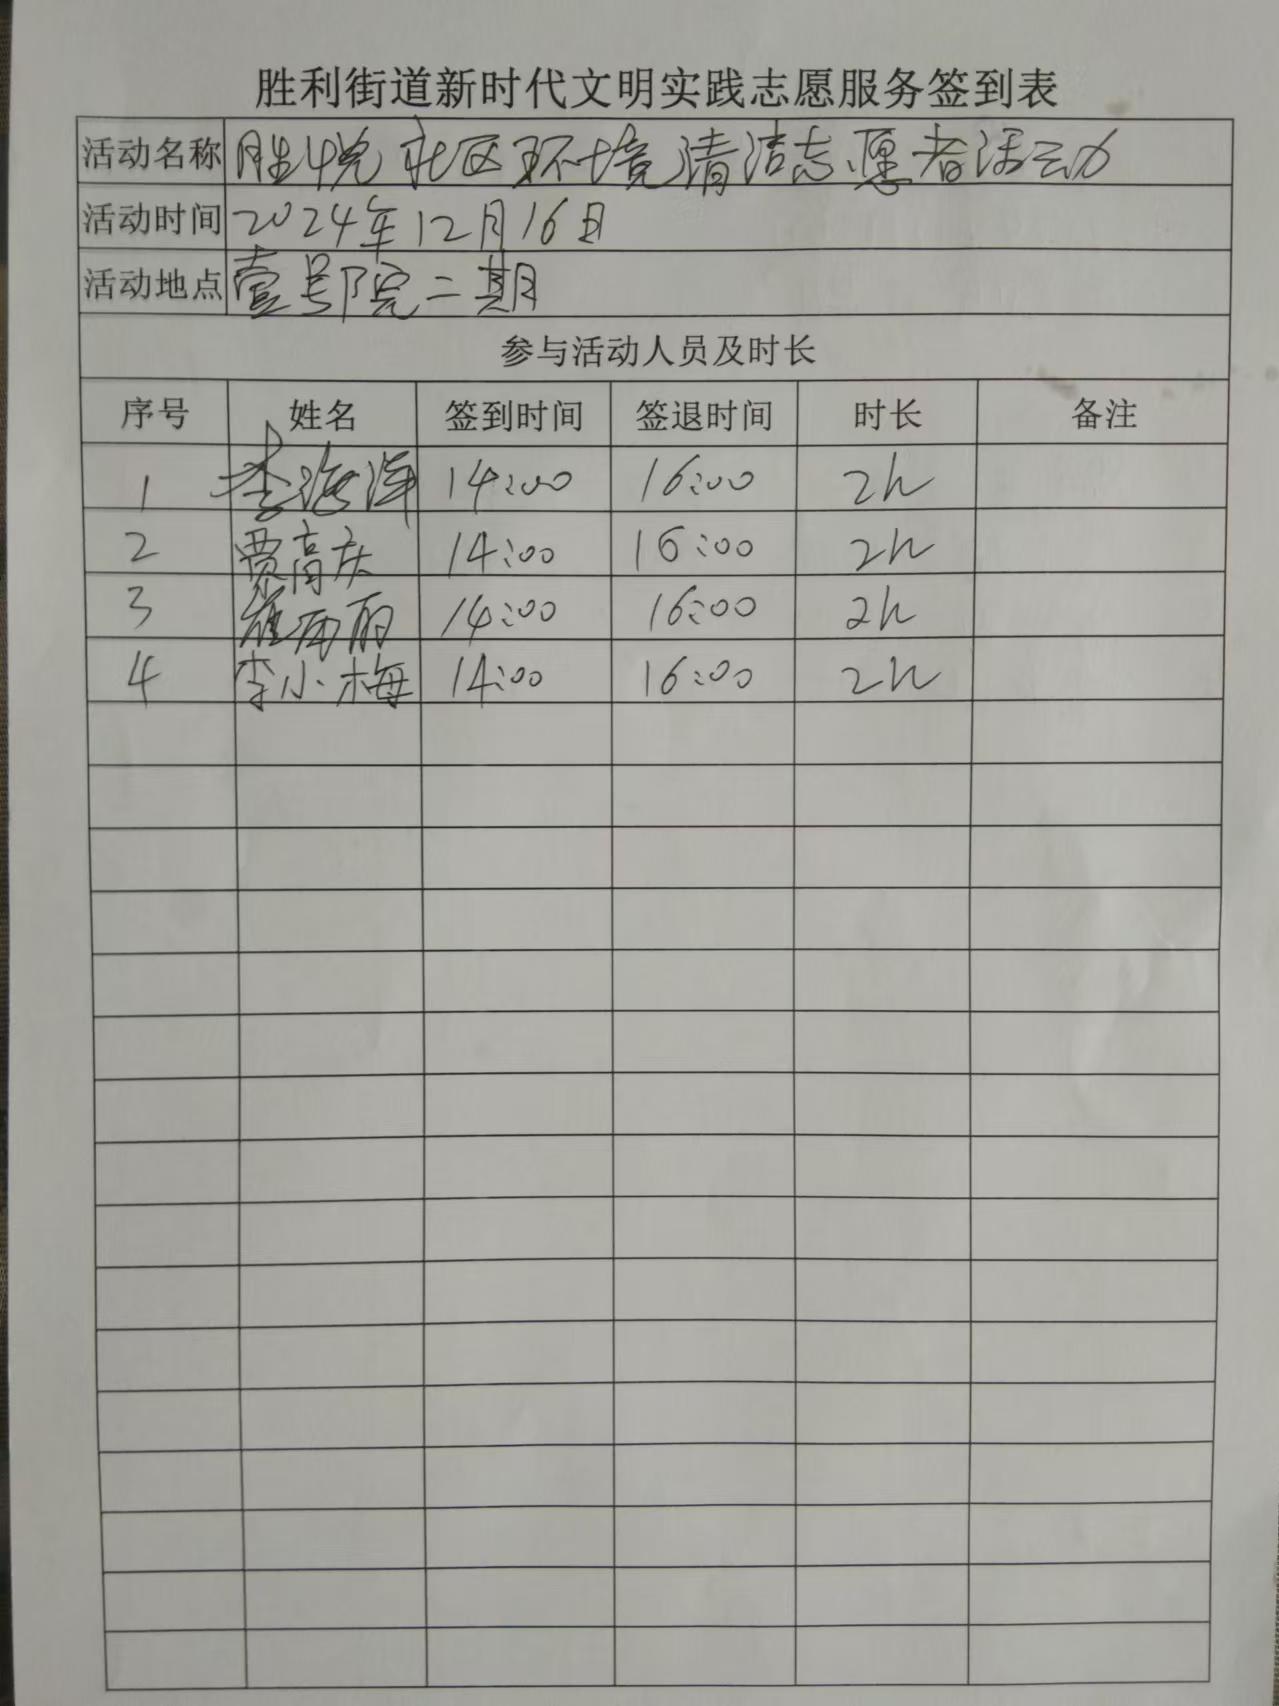 胜利街道新时代文明实践志愿服务签到表
活动名称 胜悦社区环境清洁志愿者活动
活动时间 2024年12月16日
活动地点 壹号院二期
参与活动人员及时长
序号 姓名 签到时间 签退时间 时长 备注
1 李海洋 14:00 16:00 2h
2 贾高庆 14:00 16:00 2h
3 14:00 16:00 2h
4 李小梅 14:00 16:00 2h